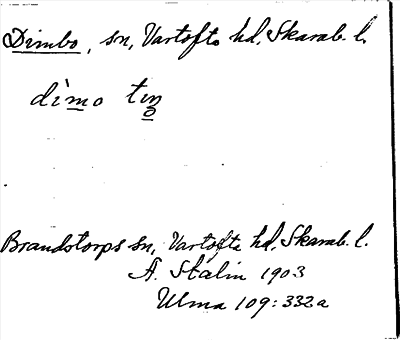 Dimbo, sn, Vartofta hd, Skarab. l.
dìmo tıŋ
Brandstorps sn, Vartofta hd, Skarab. l.
A. Stalin 1903
Ulma 109:332a